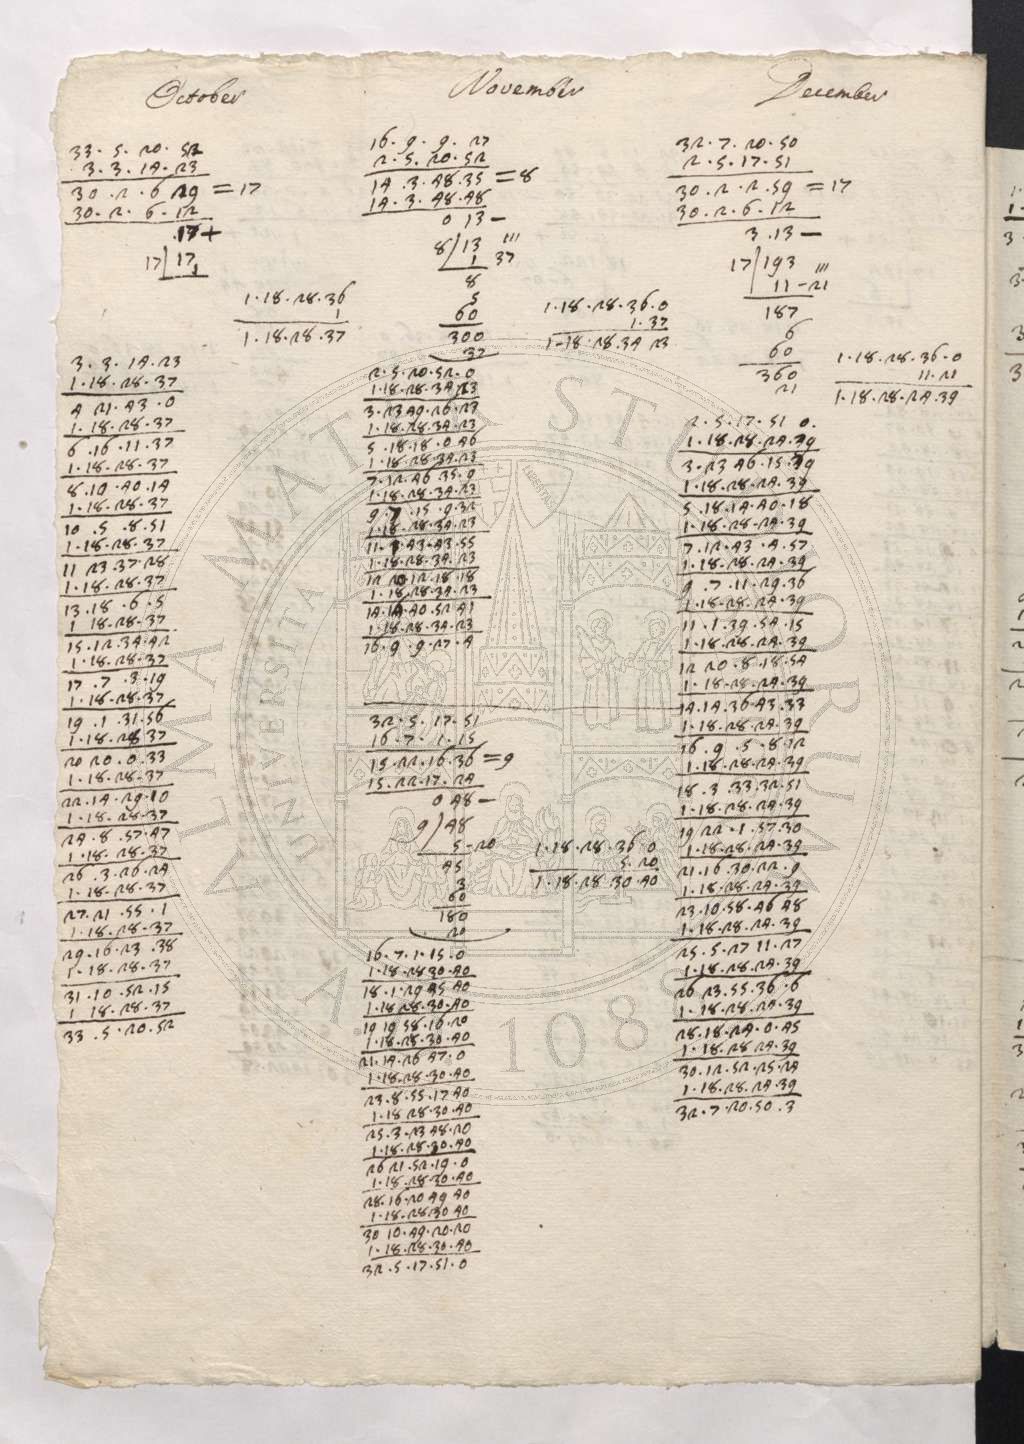 October
33. 5. 20. 52
3. 3. 14. 23
30. 2. 6 29 = 17
30. 2. 6. 12
.17 +
17 | 17
1
1. 18. 28. 36
1
1. 18. 28. 37
3. 3. 14. 23
1. 18. 28. 37
4 21. 43. 0
1. 18. 28. 37
6. 16. 11. 37
1. 18. 28. 37
8. 10. 40. 14
1. 18. 28. 37
10. 5. 8. 51
1. 18. 28. 37
11 23 37. 28
1. 18. 28. 37
13. 18. 6. 5
1 18. 28. 37
15. 12. 34. 42
1. 18. 28. 37
17. 7. 3. 19
1. 18. 28. 37
19. 1. 31. 56
1. 18. 28 37
20 20. 0. 33
1. 18. 28. 37
22. 14. 29. 10
1. 18. 28. 37
24. 8. 57. 47
1. 18. 28. 37
26. 3. 26. 24
1. 18. 28. 37
27. 21. 55. 1
1. 18. 28. 37
29. 16. 23. 38
1. 18. 28. 37
31. 10. 52. 15
1 18. 28. 37
33. 5. 20. 52
November
16. 9. 9. 27
2. 5. 20. 52
14. 3. 48. 35 = 8
14. 3. 48. 48
0 13 -
8 | 13 '''
1 37
8
5
60
300
37
1. 18. 28. 36. 0
1. 37
1-18. 28. 34 23
2. 5. 20. 52. 0
1. 18. 28. 34. 23
3. 23 49. 26. 23
1. 18. 28. 34. 23
5. 18. 18. 0. 46
1. 18. 28. 34. 23
7. 12. 46 35. 9
1. 18. 28. 34. 23
9. 7. 15. 9. 32
1. 18. 28. 34. 23
11. 1. 43. 43. 55
1. 18. 28. 34. 23
12 20. 12. 18. 18
1. 18. 28. 34. 23
14. 14. 40. 52. 41
1. 18. 28. 34. 23
16. 9. 9. 27. 4
32. 5. 17. 51
16. 7. 1. 15
15. 22. 16. 36 = 9
15. 22. 17. 24
0 48 -
9 | 48
5 - 20
45
3
60
180
20
1. 18. 28. 36. 0
5. 20
1. 18. 28. 30. 40
16. 7. 1. 15. 0
1. 18. 28 30. 40
18. 1. 29 45 40
1. 18 28. 30. 40
19 19 58. 16. 20
1. 18. 28. 30. 40
21. 14. 26 47. 0
1. 18. 28. 30. 40
23. 8. 55. 17 40
1. 18 28. 30. 40
25. 3. 23 48. 20
1. 18. 28. 30. 40
26 21. 52. 19. 0
1. 18. 28 30. 40
28. 16. 20 49 40
1. 18. 28 30 40
30 10. 49. 20. 20
1. 18. 28. 30. 40
32. 5. 17. 51. 0
December
32. 7. 20. 50
2. 5. 17. 51
30. 2. 2. 59 = 17
30. 2. 6. 12
3. 13 -
17 | 193 '''
11 - 21
187
6
60
360
21
1. 18. 28. 36. 0
11. 21
1. 18. 28. 24. 39
2. 5. 17. 51 0.
1. 18. 28. 24. 39
3. 23 46. 15. 39
1. 18. 28. 24. 39
5. 18. 14. 40. 18
1. 18. 28. 24. 39
7. 12. 43. 4. 57
1. 18. 28. 24. 39
9. 7. 11. 29. 36
1. 18. 28. 24. 39
11. 1. 39. 54. 15
1. 18. 28. 24. 39
12 20. 8. 18. 54
1. 18. 28. 24. 39
14. 14. 36 43. 33
1. 18. 28. 24. 39
16. 9. 5. 8. 12
1. 18. 28. 24. 39
18. 3. 33. 32. 51
1. 18. 28. 24. 39
19 22. 1. 57. 30
1. 18. 28. 24. 39
21. 16. 30. 22. 9
1. 18. 28. 24. 39
23. 10. 58. 46 48
1. 18. 28. 24. 39
25. 5. 27 11. 27
1. 18. 28. 24. 39
26 23. 55. 36. 6
1. 18. 28. 24. 39
28. 18. 24. 0. 45
1. 18. 28. 24. 39
30. 12. 52. 25. 24
1. 18. 28. 24. 39
32. 7. 20. 50. 3
ALMA MATER STUDIORUM
A.D. 1088